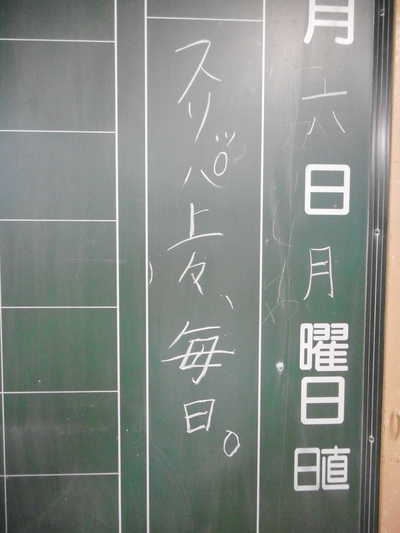 月六日月曜日 日直
スリッパ上々、毎日。